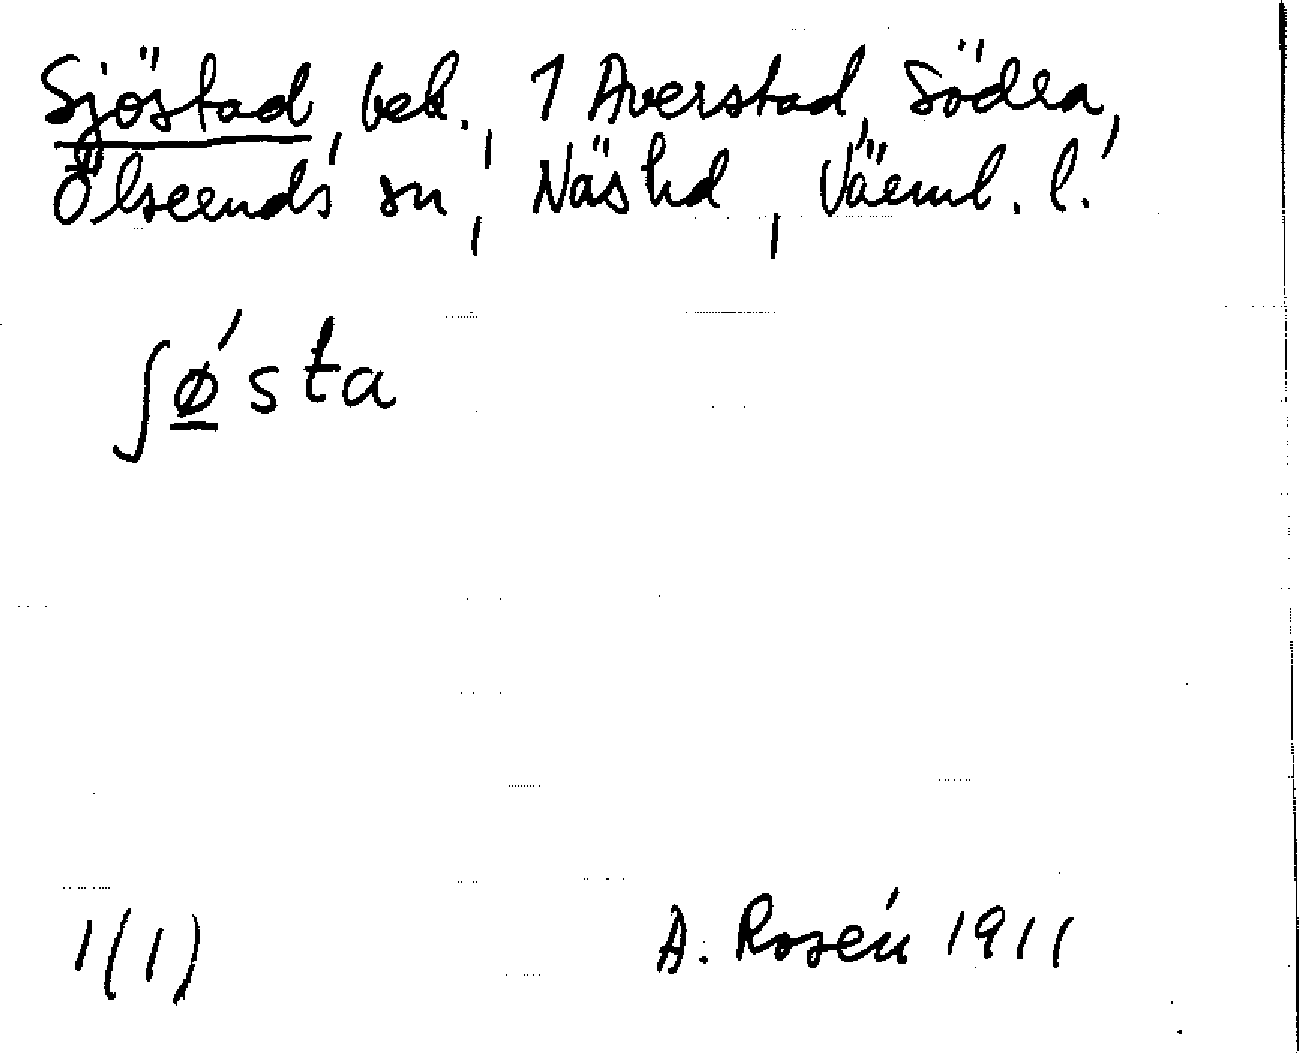 Sjöstad, bek., 1 Averstad, Södra,
Ölseruds sn, Näs hd, Värml. l.
ʃø̲´sta
1(1) A. Rosén 1911